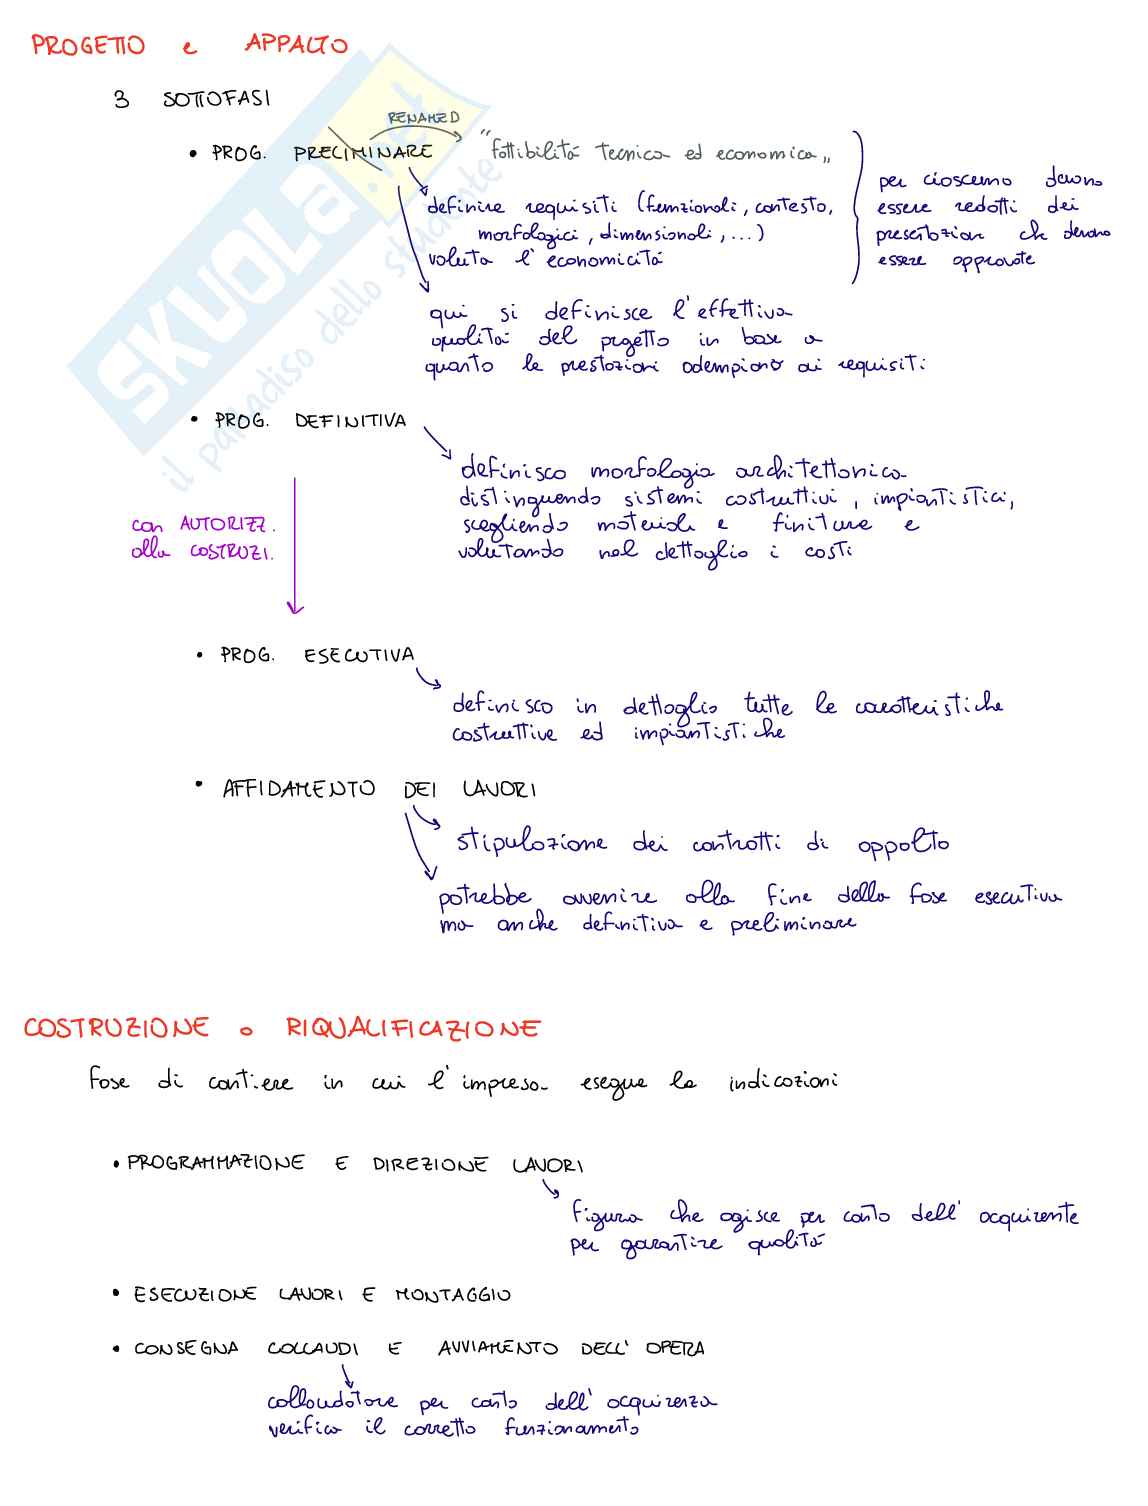 PROGETTO e APPALTO
3 SOTTOFASI
RENAMED
• PROG. PRELIMINARE "fattibilità tecnica ed economica"
definire requisiti (funzionali, contesto,
morfologici, dimensionali, ...)
valuta l'economicità
per ciascuno devono
essere redatti dei
prestazioni che devono
essere approvate
qui si definisce l'effettiva
qualità del progetto in base a
quanto le prestazioni adempiono ai requisiti
• PROG. DEFINITIVA
definisco morfologia architettonica
distinguendo sistemi costruttivi, impiantistici,
scegliendo materiali e finiture e
valutando nel dettaglio i costi
con AUTORIZZ.
alla COSTRUZI.
• PROG. ESECUTIVA
definisco in dettaglio tutte le caratteristiche
costruttive ed impiantistiche
• AFFIDAMENTO DEI LAVORI
stipulazione dei contratti di appalto
potrebbe avvenire alla fine della fase esecutiva
ma anche definitiva e preliminare
COSTRUZIONE o RIQUALIFICAZIONE
Fase di cantiere in cui l'impresa esegue le indicazioni
• PROGRAMMAZIONE E DIREZIONE LAVORI
figura che agisce per conto dell'acquirente
per garantire qualità
• ESECUZIONE LAVORI E MONTAGGIO
• CONSEGNA COLLAUDI E AVVIAMENTO DELL'OPERA
collaudatore per conto dell'acquirenza
verifica il corretto funzionamento
SKUOLA.net
il paradiso dello studente